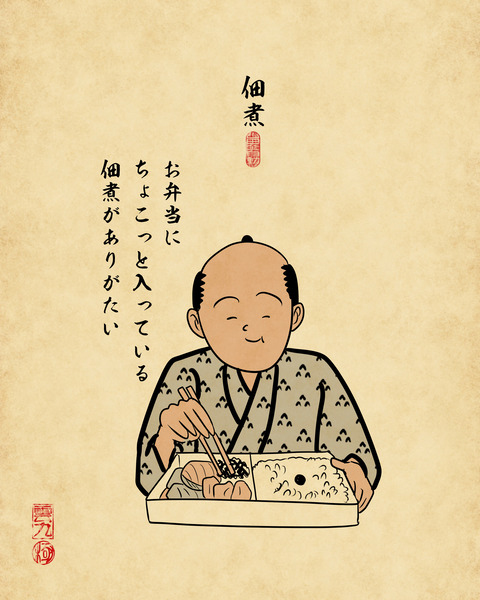 佃煮
お弁当に
ちょこっと入っている
佃煮がありがたい